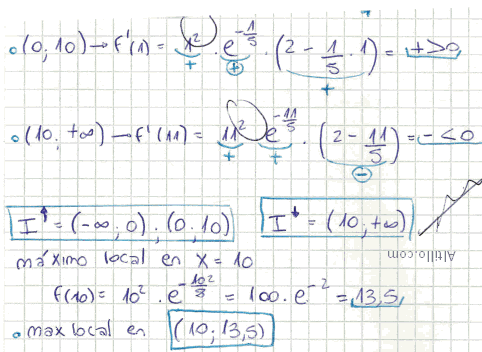 • (0; 10) → f'(1) = 1² · e^(-1/5) · (2 - 1/5 · 1) = + > 0
+ + +
• (10; +∞) → f'(11) = 11² · e^(-11/5) · (2 - 11/5) = - < 0
+ + -
I↑ = (-∞; 0) ; (0; 10) I↓ = (10; +∞)
máximo local en x = 10
Altillo.com
f(10) = 10² · e^(-10²/5) = 100 · e^(-2) = 13,5
• max local en (10; 13,5)